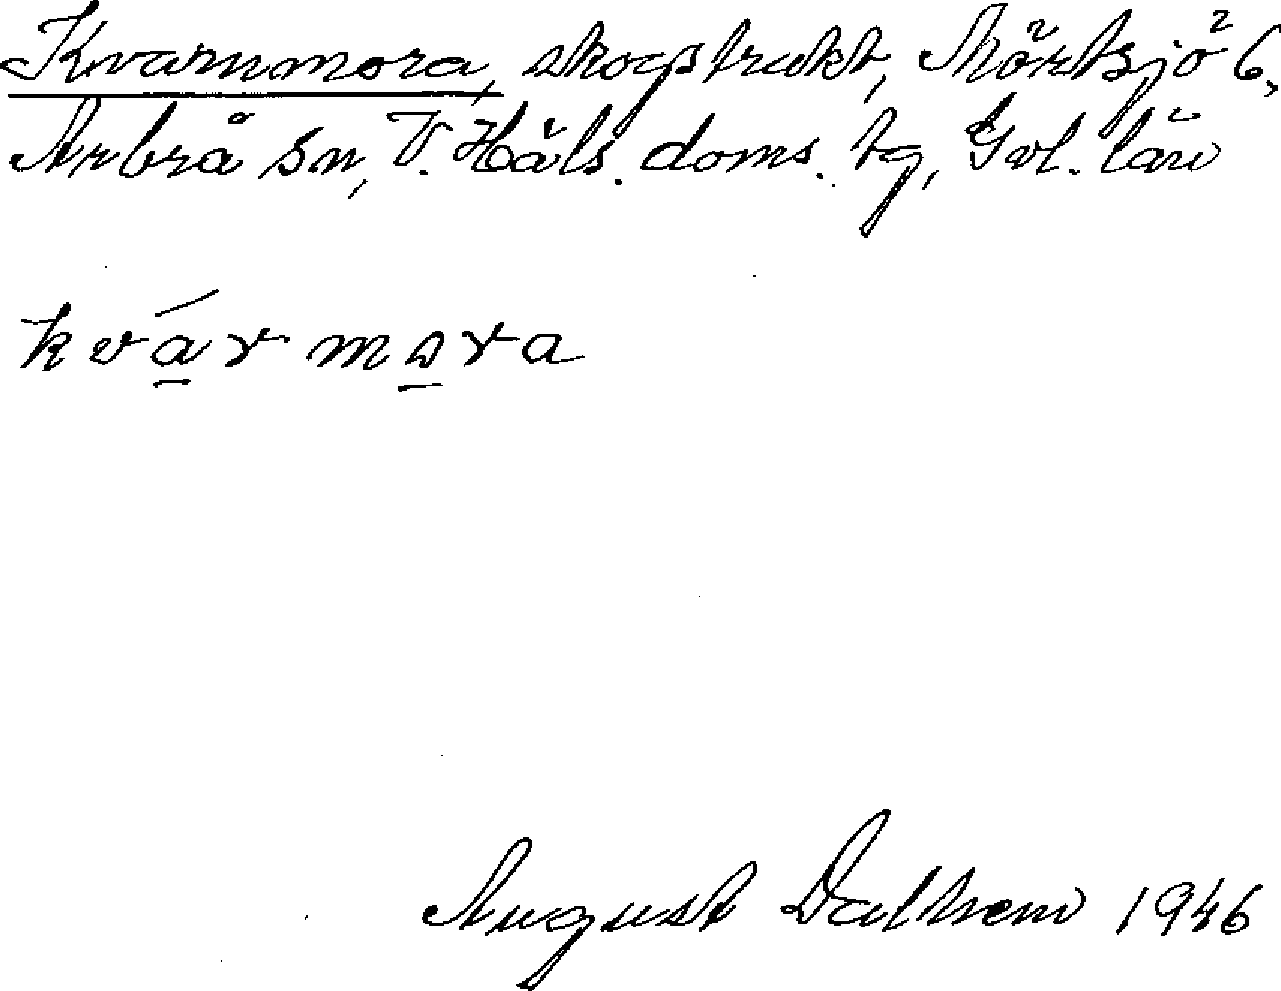 Kvarnmora, skogstrakt, Mörtsjö² 6,
Arbrå sn, V. Häls. doms. tg, Gvl. län
kvármora
August Dalhem 1946